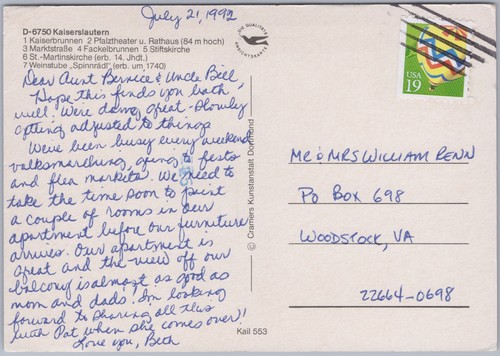 July 21, 1992
D-6750 Kaiserslautern
1 Kaiserbrunnen 2 Pfalztheater u. Rathaus (84 m hoch)
3 Marktstraße 4 Fackelbrunnen 5 Stiftskirche
6 St.-Martinskirche (erb. 14. Jhdt.)
7 Weinstube „Spinnrädl" (erb. um 1740)
Dear Aunt Bernice & Uncle Bill
Hope this finds you both
well. We're doing great - slowly
getting adjusted to things.
We've been busy every weekend
volksmarching, going to fests
and flea markets. We need to
take the time soon to paint
a couple of rooms in our
apartment before our furniture
arrives. Our apartment is
great and the view off our
balcony is almost as good as
mom and dads! I'm looking
forward to sharing all this
with Pat when she comes over!
Love you, Beth
© Cramers Kunstanstalt Dortmund
Kail 553
USA
19
MR & MRS WILLIAM RENN
PO BOX 698
WOODSTOCK, VA
22664-0698